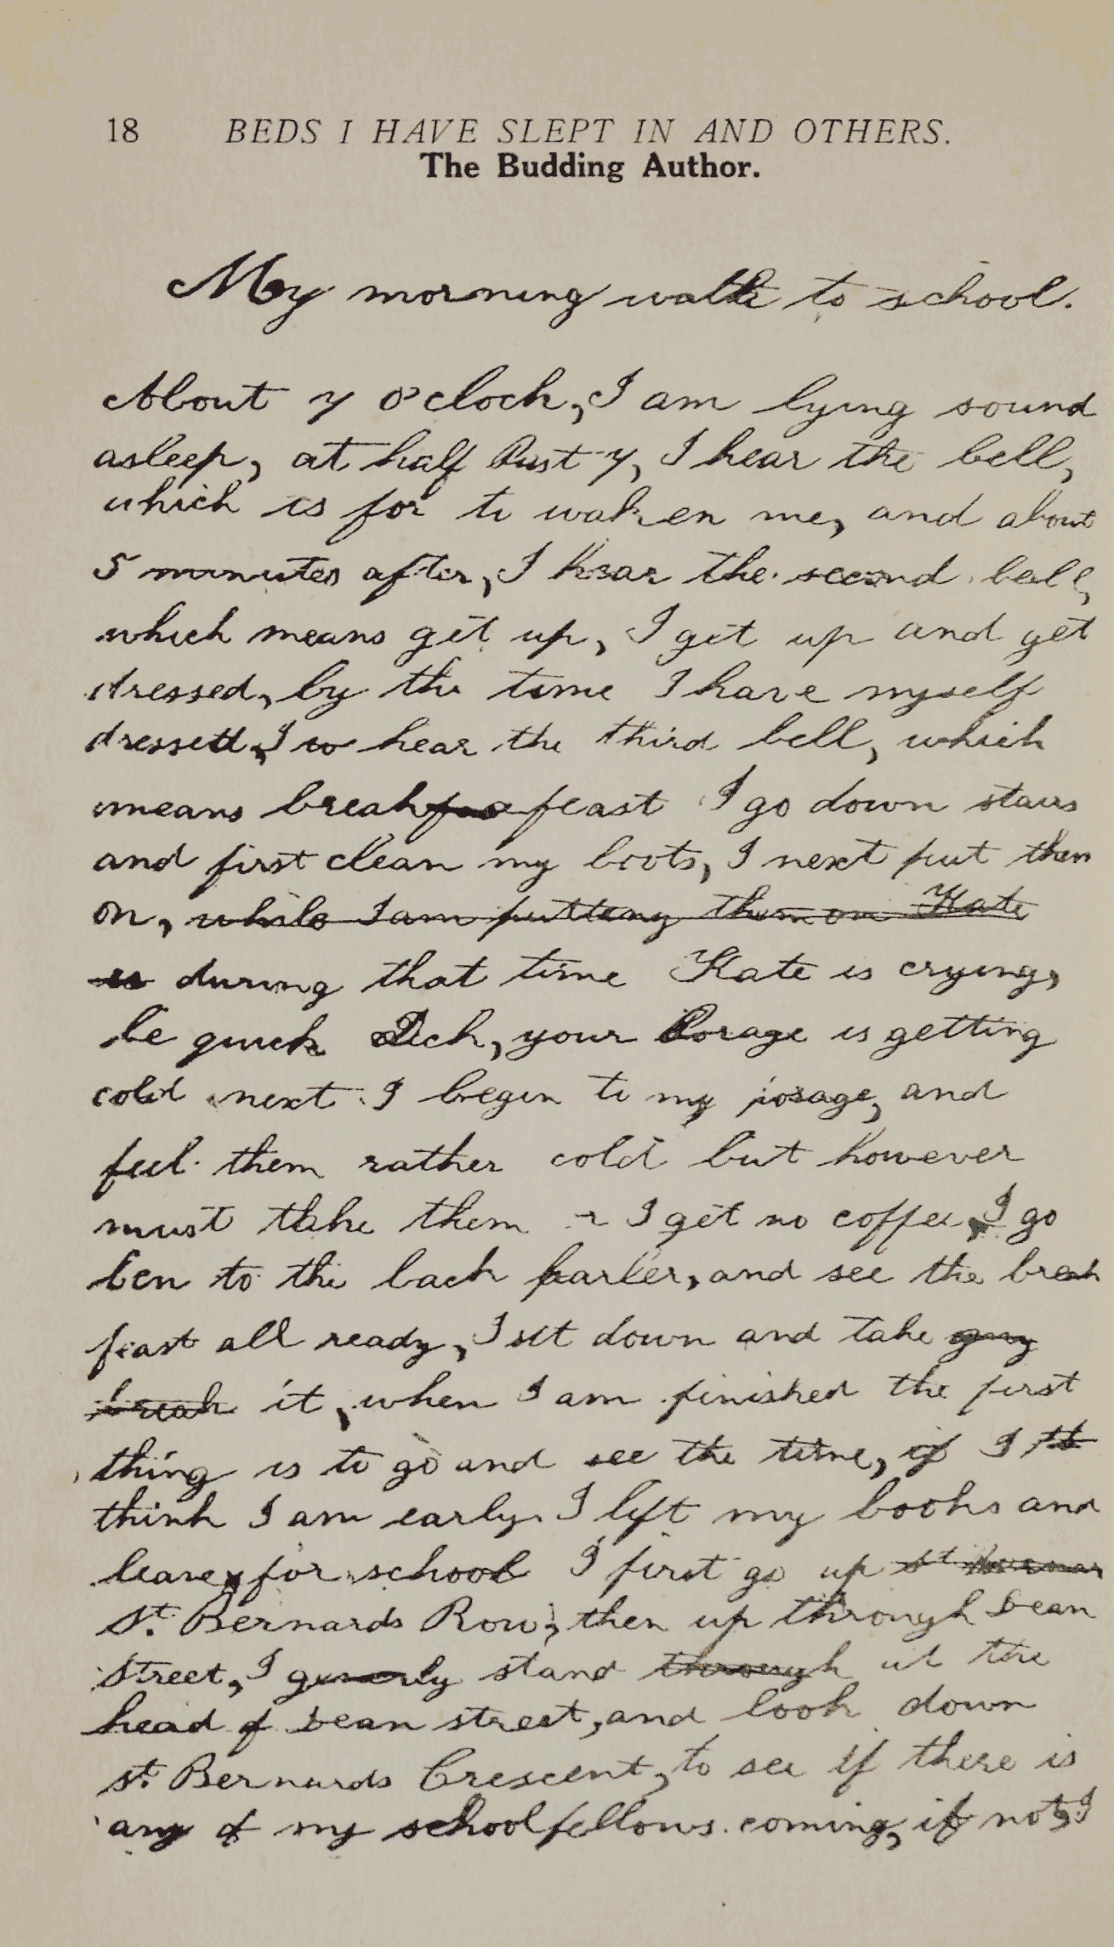 18 BEDS I HAVE SLEPT IN AND OTHERS.
The Budding Author.
My morning walk to school.
About 7 o'clock, I am lying sound
asleep, at half Past 7, I hear the bell,
which is for to waken me, and about
5 minutes after, I hear the second bell,
which means get up, I get up and get
dressed, by the time I have myself
dressed, I hear the third bell, which
means breakfeast I go down stairs
and first clean my boots, I next put them
on, while I am putting them on Kate
is during that time Kate is crying,
be quick Dick, your Porage is getting
cold next I begin to my porage, and
feel them rather cold but however
must take them I get no coffee, I go
ben to the back parler, and see the break
feast all ready, I sit down and take my
break it, when I am finished the first
thing is to go and see the time, if I th
think I am early I lift my books and
leave for school I first go up St Bernar
St. Bernards Row, then up through Dean
Street, I generly stand through at the
head of Dean street, and look down
St. Bernards Crescent, to see if there is
any of my schoolfellows coming, if not, I